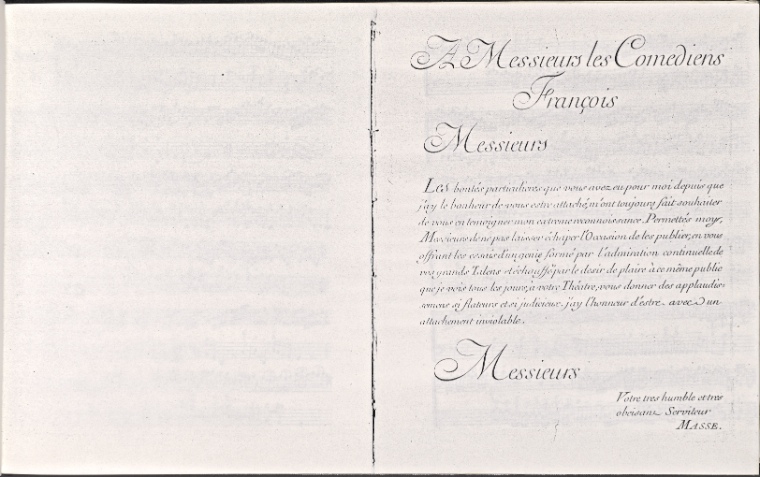 A Messieurs les Comediens
François
Messieurs
Les bontés particulieres que vous avez eu pour moi depuis que
j'ay le bonheur de vous estre attaché, m'ont toujours fait souhaiter
de vous en temoigner mon extreme reconnoissance. Permettés moy,
Messieurs de ne pas laisser échaper l'Occasion de les publier, en vous
offrant les essais d'un genie formé par l'admiration continuelle de
vos grands Talens et échauffé par le desir de plaire à ce même public
que je vois tous les jours, à votre Théatre, vous donner des applaudis-
semens si flateurs et si judicieux. j'ay l'honneur d'estre avec un
attachement inviolable.
Messieurs
Votre tres humble et tres
obeisant Serviteur
MASSE.